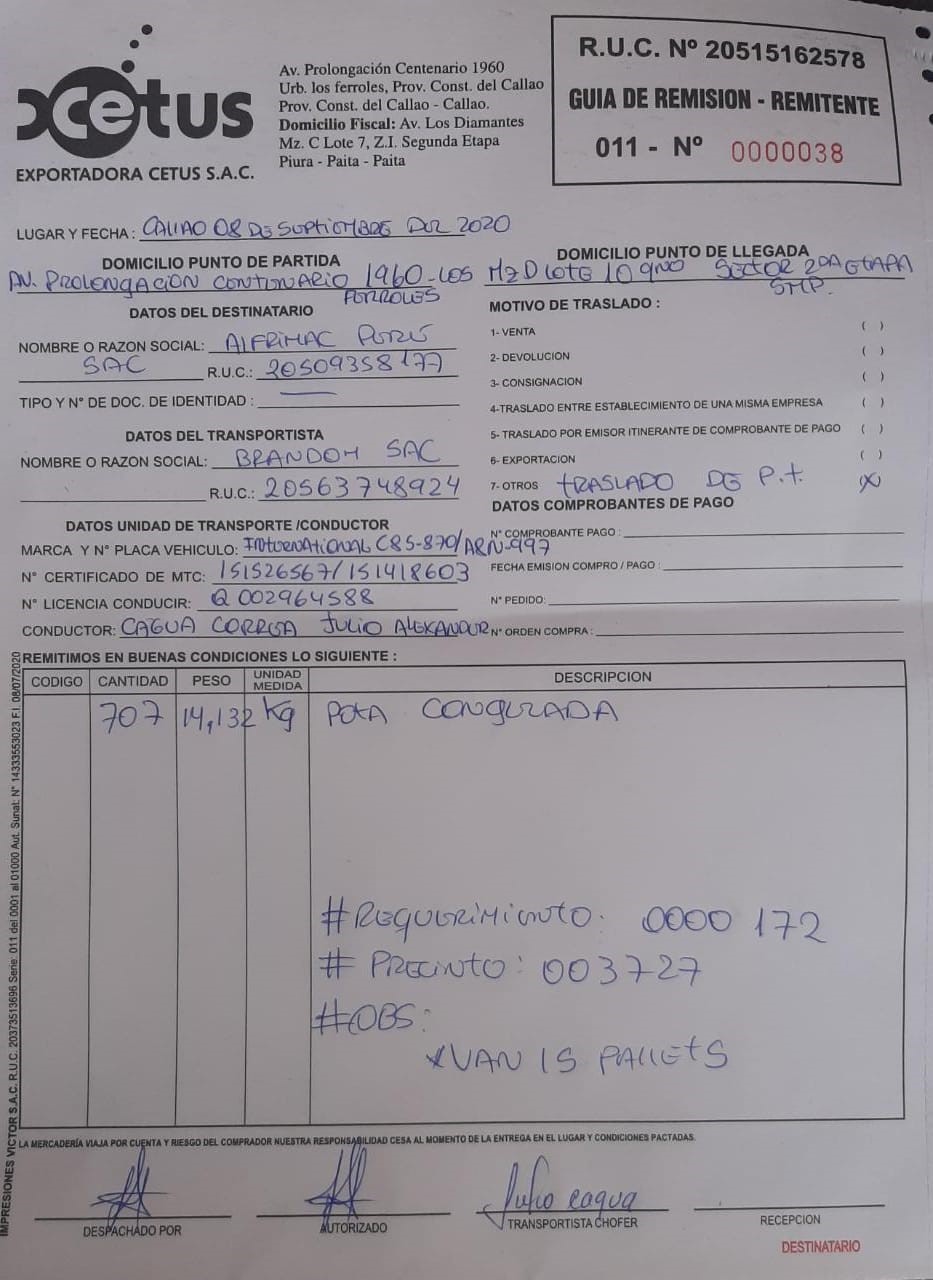 cetus
EXPORTADORA CETUS S.A.C.
Av. Prolongación Centenario 1960
Urb. los ferroles, Prov. Const. del Callao
Prov. Const. del Callao - Callao.
Domicilio Fiscal: Av. Los Diamantes
Mz. C Lote 7, Z.I. Segunda Etapa
Piura - Paita - Paita
R.U.C. Nº 20515162578
GUIA DE REMISION - REMITENTE
011 - Nº 0000038
LUGAR Y FECHA : CALLAO 08 DE SEPTIEMBRE DEL 2020
DOMICILIO PUNTO DE PARTIDA
AV. PROLONGACION CENTENARIO 1960 - LOS
FERROLES
DOMICILIO PUNTO DE LLEGADA
Mz D LOTE 10 SECTOR 2DA ETAPA
SMP.
DATOS DEL DESTINATARIO
NOMBRE O RAZON SOCIAL: ALFRIMAC PERÚ
SAC R.U.C.: 20509358177
TIPO Y N° DE DOC. DE IDENTIDAD : —
MOTIVO DE TRASLADO :
1- VENTA ( )
2- DEVOLUCION ( )
3- CONSIGNACION ( )
4-TRASLADO ENTRE ESTABLECIMIENTO DE UNA MISMA EMPRESA ( )
5- TRASLADO POR EMISOR ITINERANTE DE COMPROBANTE DE PAGO ( )
6- EXPORTACION ( )
7- OTROS TRASLADO DE P.t (X)
DATOS DEL TRANSPORTISTA
NOMBRE O RAZON SOCIAL: BRANDOM SAC
R.U.C.: 20563748924
DATOS UNIDAD DE TRANSPORTE /CONDUCTOR
MARCA Y N° PLACA VEHICULO: INTERNATIONAL C8S-870/ARN-997
N° CERTIFICADO DE MTC: 151526567/151418603
N° LICENCIA CONDUCIR: Q 002964588
CONDUCTOR: CAGUA CORREA JULIO ALEXANDER
DATOS COMPROBANTES DE PAGO
N° COMPROBANTE PAGO :
FECHA EMISION COMPRO / PAGO :
N° PEDIDO:
N° ORDEN COMPRA :
REMITIMOS EN BUENAS CONDICIONES LO SIGUIENTE :
CODIGO CANTIDAD PESO UNIDAD MEDIDA DESCRIPCION
707 14,132 Kg POTA CONGELADA
#REQUERIMIENTO: 0000 172
# PRECINTO: 003727
#OBS:
*VAN 15 PALLETS
IMPRESIONES VICTOR S.A.C. R.U.C. 20373513696 Serie: 011 del 0001 al 01000 Aut. Sunat: N° 14333553023 F.I. 08/07/2020
LA MERCADERÍA VIAJA POR CUENTA Y RIESGO DEL COMPRADOR NUESTRA RESPONSABILIDAD CESA AL MOMENTO DE LA ENTREGA EN EL LUGAR Y CONDICIONES PACTADAS.
Julio cagua
DESPACHADO POR
AUTORIZADO
TRANSPORTISTA CHOFER
RECEPCION
DESTINATARIO